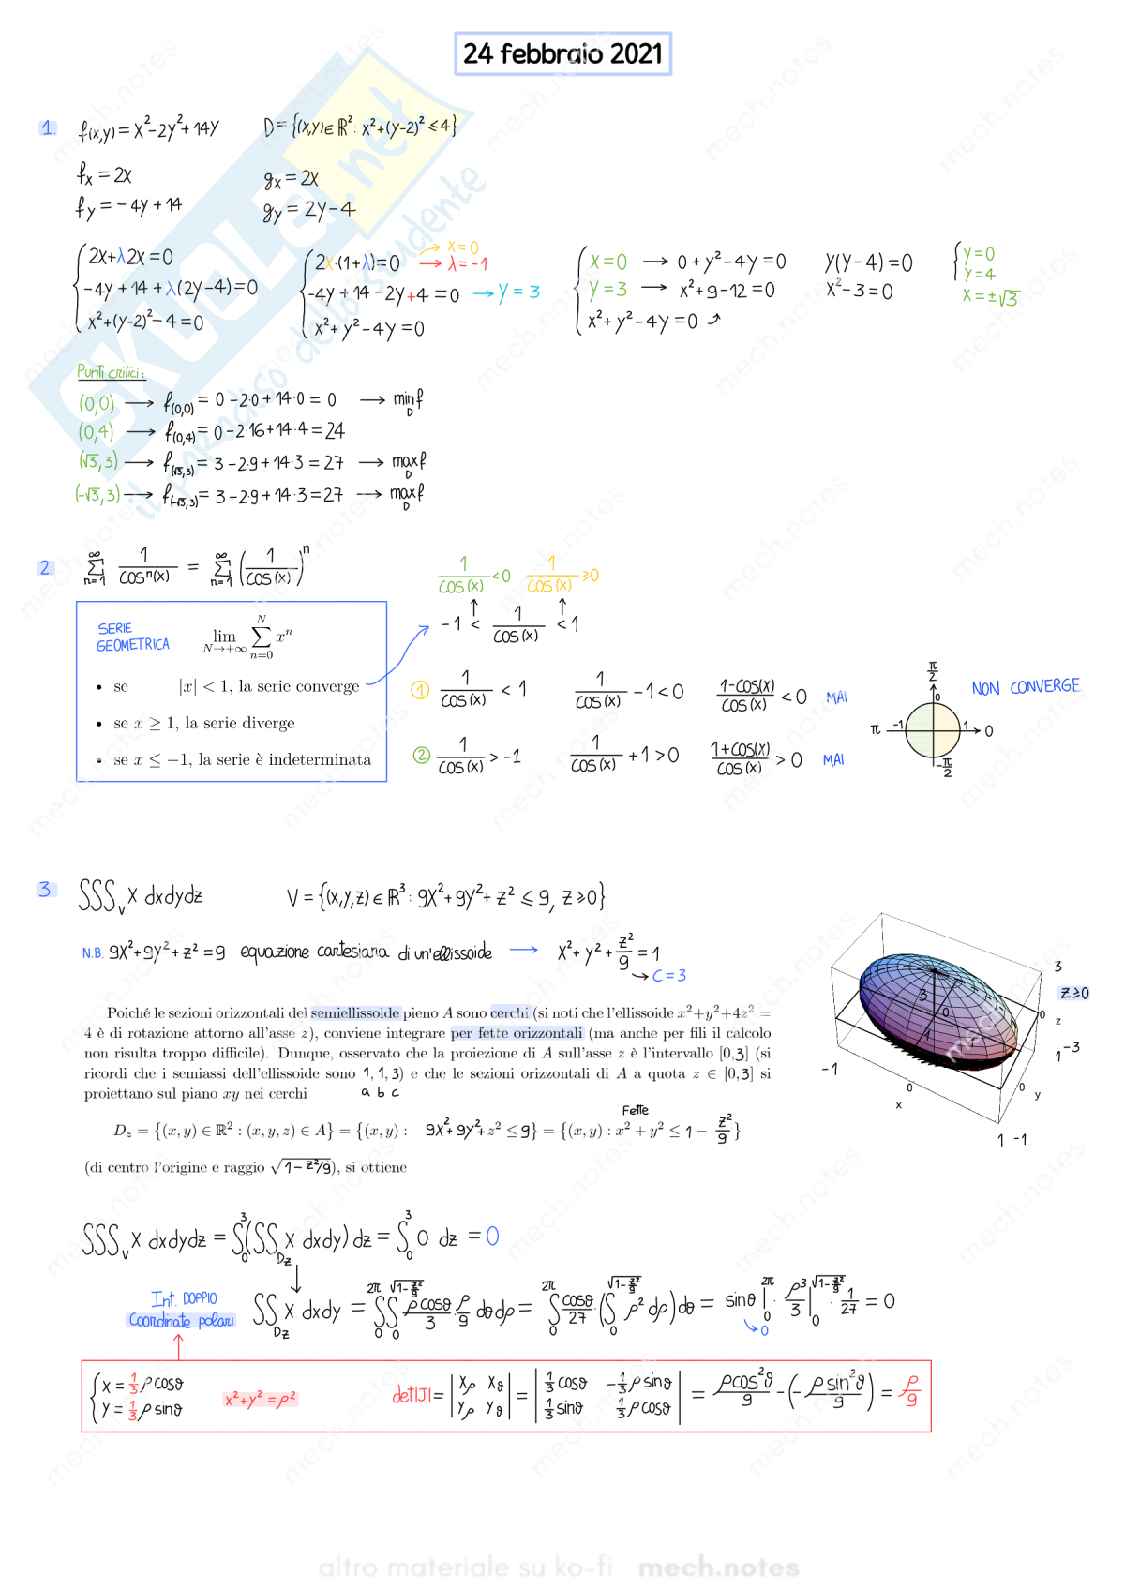 24 febbraio 2021
1. f(x,y) = x²-2y²+14y D = {(x,y)∈ℝ²: x²+(y-2)² ≤ 4}
fx = 2x gx = 2x
fy = -4y + 14 gy = 2y - 4
{ 2x+λ2x = 0 { 2x·(1+λ) = 0 → x=0 → λ=-1 { x=0 → 0 + y² - 4y = 0 y(y-4) = 0 { y=0
-4y + 14 + λ(2y-4) = 0 -4y + 14 - 2y + 4 = 0 → y = 3 y=3 → x² + 9 - 12 = 0 x² - 3 = 0 y=4
x²+(y-2)² - 4 = 0 x² + y² - 4y = 0 x² + y² - 4y = 0 x = ±√3
Punti critici:
(0,0) → f(0,0) = 0 - 2·0 + 14·0 = 0 → min f D
(0,4) → f(0,4) = 0 - 2·16 + 14·4 = 24
(√3,3) → f(√3,3) = 3 - 2·9 + 14·3 = 27 → max f D
(-√3,3) → f(-√3,3) = 3 - 2·9 + 14·3 = 27 → max f D
2 ∞Σn=1 1/cosⁿ(x) = ∞Σn=1 (1/cos(x))ⁿ
1/cos(x) <0 1/cos(x) ≥0
-1 < 1/cos(x) < 1
SERIE GEOMETRICA lim N→+∞ Σ N n=0 xⁿ
• se |x| < 1, la serie converge
• se x ≥ 1, la serie diverge
• se x ≤ −1, la serie è indeterminata
① 1/cos(x) < 1 1/cos(x) - 1 < 0 1-cos(x)/cos(x) < 0 MAI
② 1/cos(x) > -1 1/cos(x) + 1 > 0 1+cos(x)/cos(x) > 0 MAI
π/2 0 π -1 1 0 -π/2
NON CONVERGE
3 ∫∫∫v x dxdydz V = {(x,y,z) ∈ ℝ³: 9x²+9y²+z² ≤ 9, z≥0}
N.B. 9x²+9y²+z² = 9 equazione cartesiana di un'ellissoide → x² + y² + z²/9 = 1
→ c = 3
Poiché le sezioni orizzontali del semiellissoide pieno A sono cerchi (si noti che l'ellissoide x²+y²+4z² =
4 è di rotazione attorno all'asse z), conviene integrare per fette orizzontali (ma anche per fili il calcolo
non risulta troppo difficile). Dunque, osservato che la proiezione di A sull'asse z è l'intervallo [0,3] (si
ricordi che i semiassi dell'ellissoide sono 1, 1, 3) e che le sezioni orizzontali di A a quota z ∈ [0,3] si
proiettano sul piano xy nei cerchi a b c
Fette
Dz = {(x,y) ∈ ℝ² : (x,y,z) ∈ A} = {(x,y) : 9x²+9y²+z² ≤ 9} = {(x,y) : x² + y² ≤ 1 − z²/9}
(di centro l'origine e raggio √1-z²/9), si ottiene
3
z≥0
z
-3
1
3
0
4
-1
0
x
0
y
0
1 -1
∫∫∫v x dxdydz = ∫₀³ (∫∫Dz x dxdy) dz = ∫₀³ 0 dz = 0
Int. DOPPIO
Coordinate polari
∫∫Dz x dxdy = ∫₀²π ∫₀√1-z²/9 ρcosϑ/3 · ρ/9 dϑdρ = ∫₀²π cosϑ/27 · (∫₀√1-z²/9 ρ² dρ) dϑ = sinϑ |₀²π · ρ³/3 |₀√1-z²/9 · 1/27 = 0
→ 0
{ x = 1/3 ρ cosϑ
y = 1/3 ρ sinϑ
x²+y² = ρ²
det|J| = | xρ xϑ yρ yϑ | = | 1/3 cosϑ -1/3 ρ sinϑ 1/3 sinϑ 1/3 ρ cosϑ | = ρcos²ϑ/9 - (- ρ sin²ϑ/9) = ρ/9
altro materiale su ko-fi mech.notes
SKUOLA.net
il paradiso dello studente
mech.notes